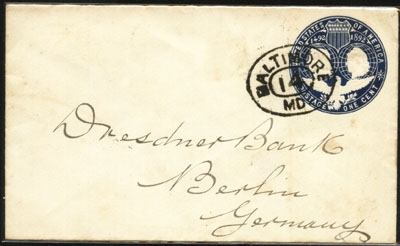 UNITED STATES OF AMERICA
1492 1892
POSTAGE ONE CENT
BALTIMORE
14
MD
Dresdner Bank
Berlin
Germany